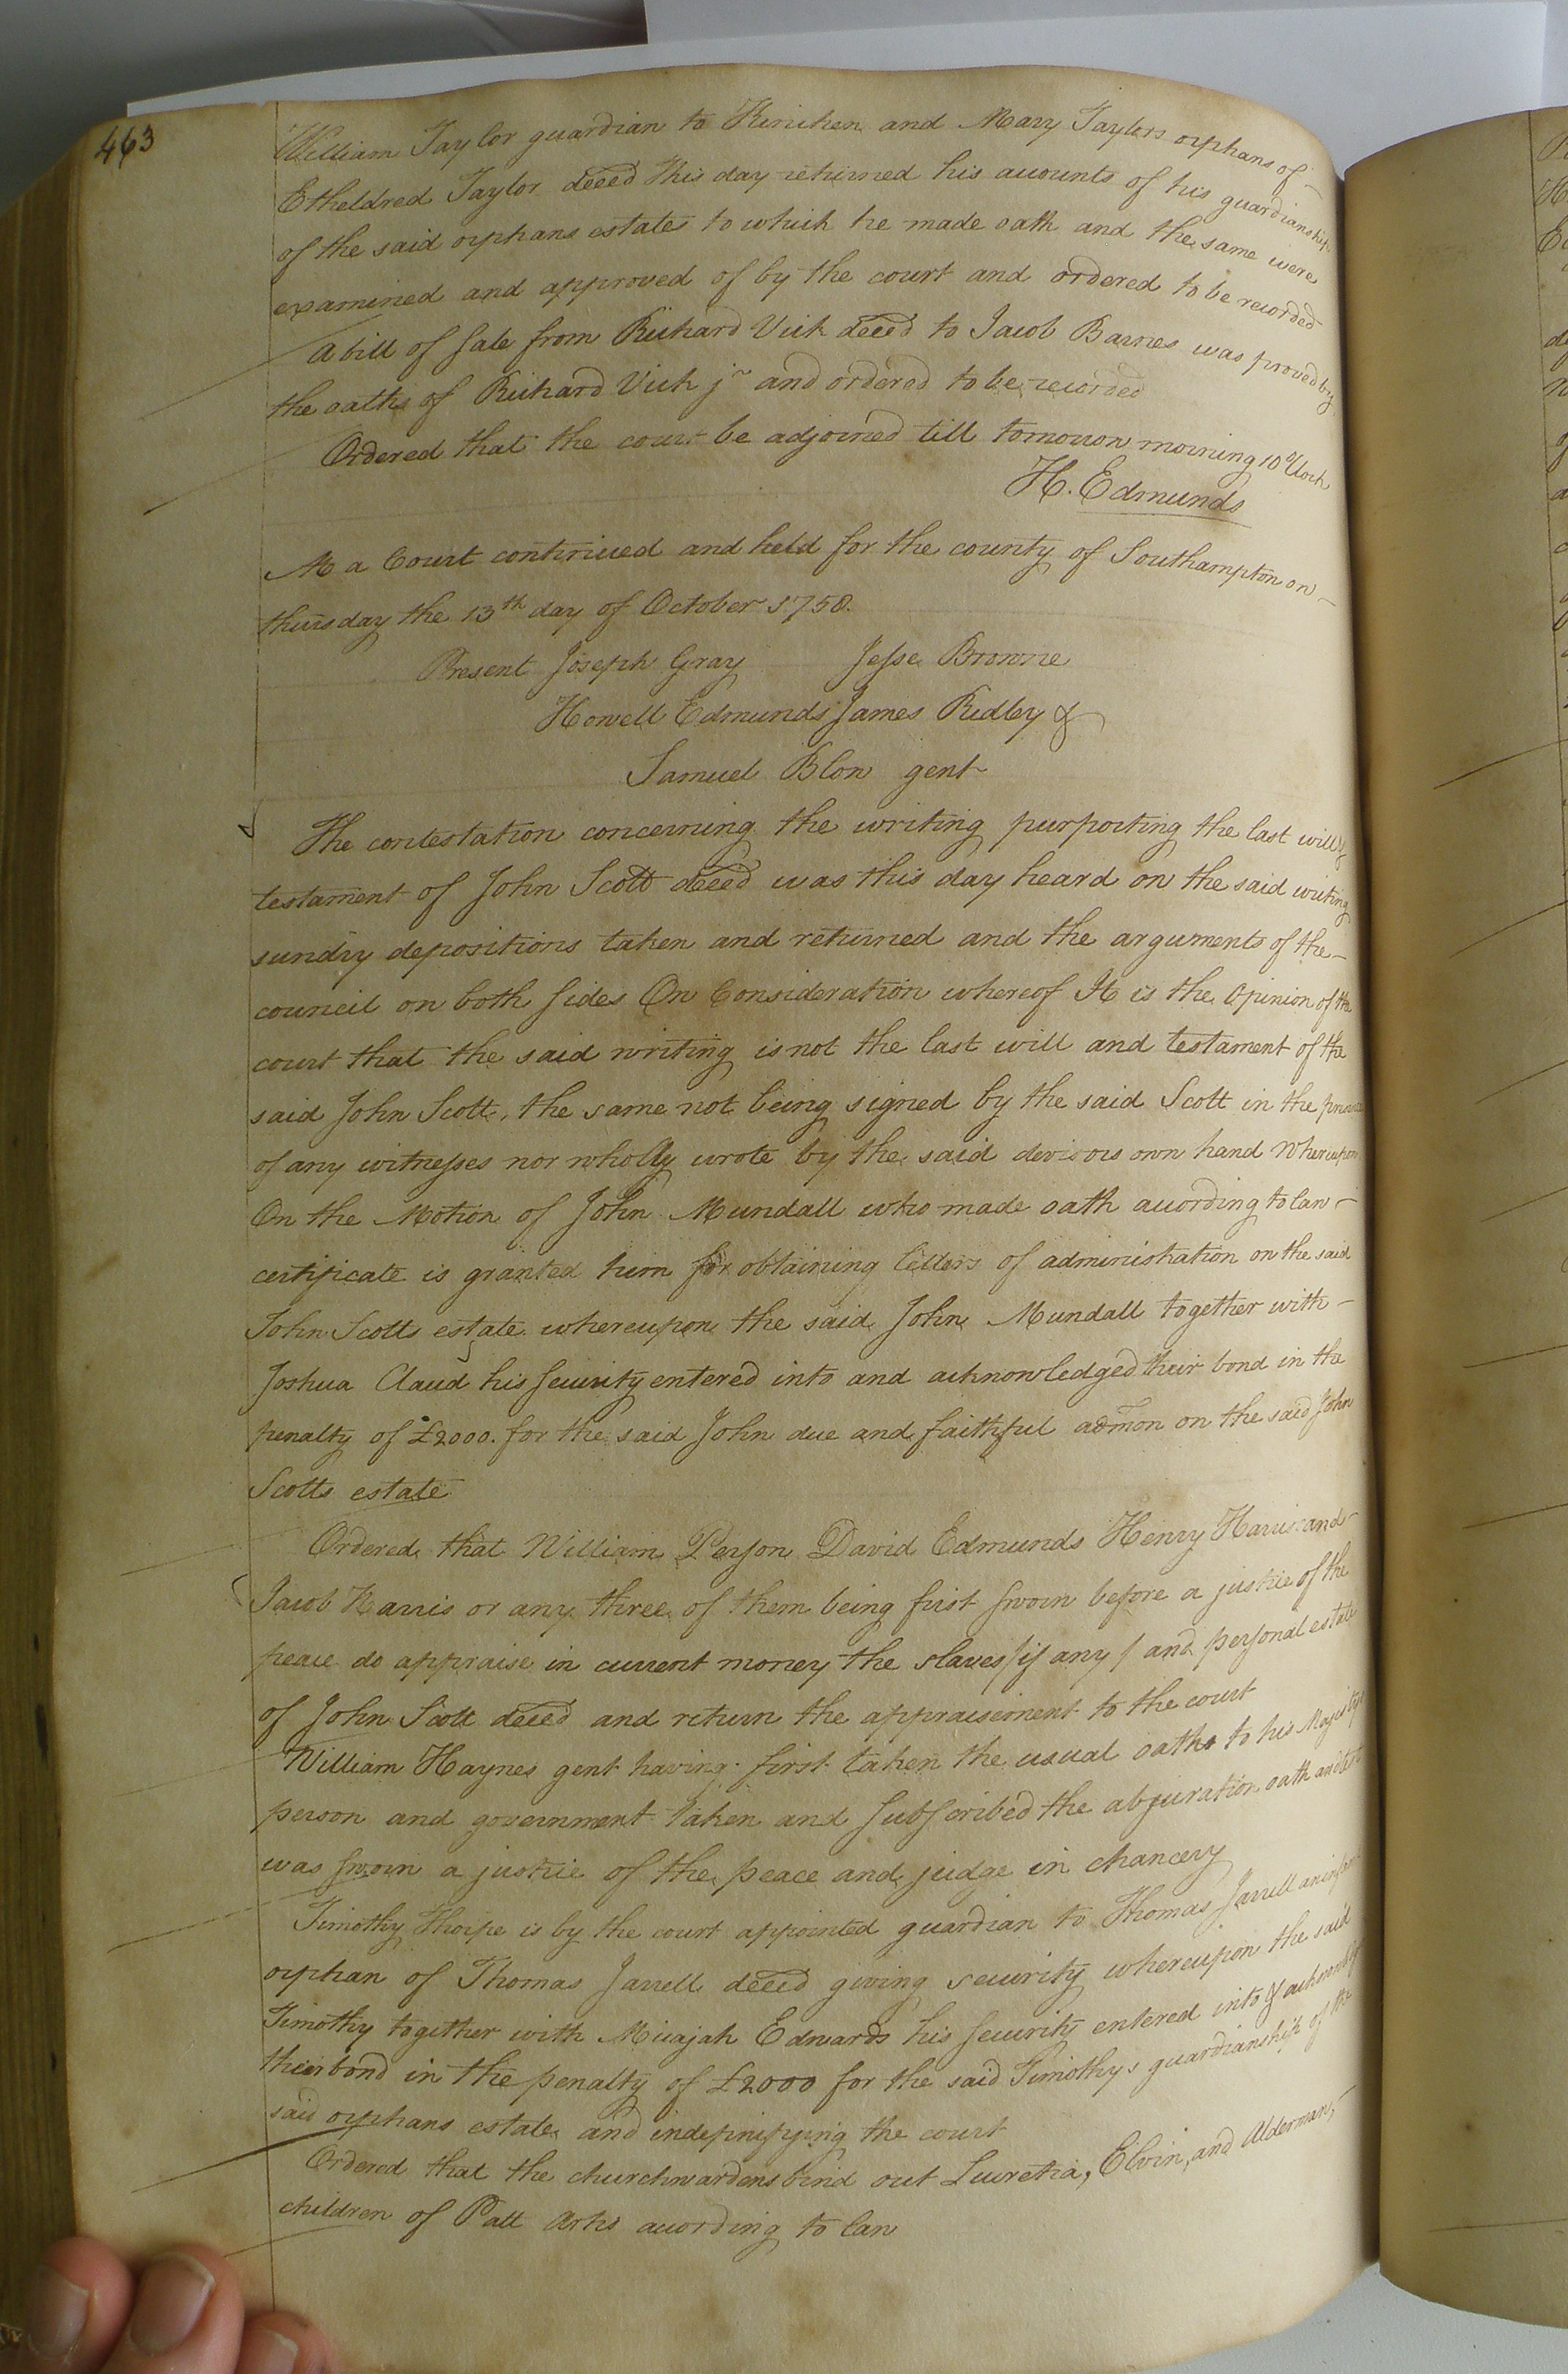 463
William Taylor guardian to Kinchen and Mary Taylors orphans of
Etheldred Taylor deced this day returned his accounts of his guardianship
of the said orphans estates to which he made oath and the same were
examined and approved of by the court and ordered to be recorded
A bill of sale from Richard Vick deced to Jacob Barnes was proved by
the oaths of Richard Vick jr and ordered to be recorded
Ordered that the court be adjoined till tomorrow morning 10 oClock
H. Edmunds
At a Court continued and held for the county of Southampton on
thursday the 13th day of October 1758.
Present Joseph Gray Jesse Browne
Howell Edmunds James Ridley &
Samuel Blow gent
The contestation concerning the writing purporting the last will &
testament of John Scott deced was this day heard on the said writing
sundry depositions taken and returned and the arguments of the
council on both sides On Consideration whereof It is the Opinion of the
court that the said writing is not the last will and testament of the
said John Scott, the same not being signed by the said Scott in the presence
of any witnesses nor wholly wrote by the said devisors own hand Whereupon
On the Motion of John Mundall who made oath according to law
certificate is granted him for obtaining letters of administration on the said
John Scotts estate whereupon the said John Mundall together with
Joshua Claud his security entered into and acknowledged their bond in the
penalty of £2000. for the said John due and faithful admon on the said John
Scotts estate
Ordered that William Person David Edmunds Henry Harris and
Jacob Harris or any three of them being first sworn before a justice of the
peace do appraise in current money the slaves /if any/ and personal estate
of John Scott deced and return the appraisement to the court
William Haynes gent having first taken the usual oaths to his Majestys
person and government taken and subscribed the abjuration oath and test
was sworn a justice of the peace and judge in chancery
Timothy Thorpe is by the court appointed guardian to Thomas Jarrell an infant
orphan of Thomas Jarrell deced giving security whereupon the said
Timothy together with Micajah Edwards his security entered into & acknowledged
their bond in the penalty of £2000 for the said Timothys guardianship of the
said orphans estate and indepnifying the court
Ordered that the churchwardens bind out Lucretia, Elvin, and Alderman,
children of Patt Arks according to law